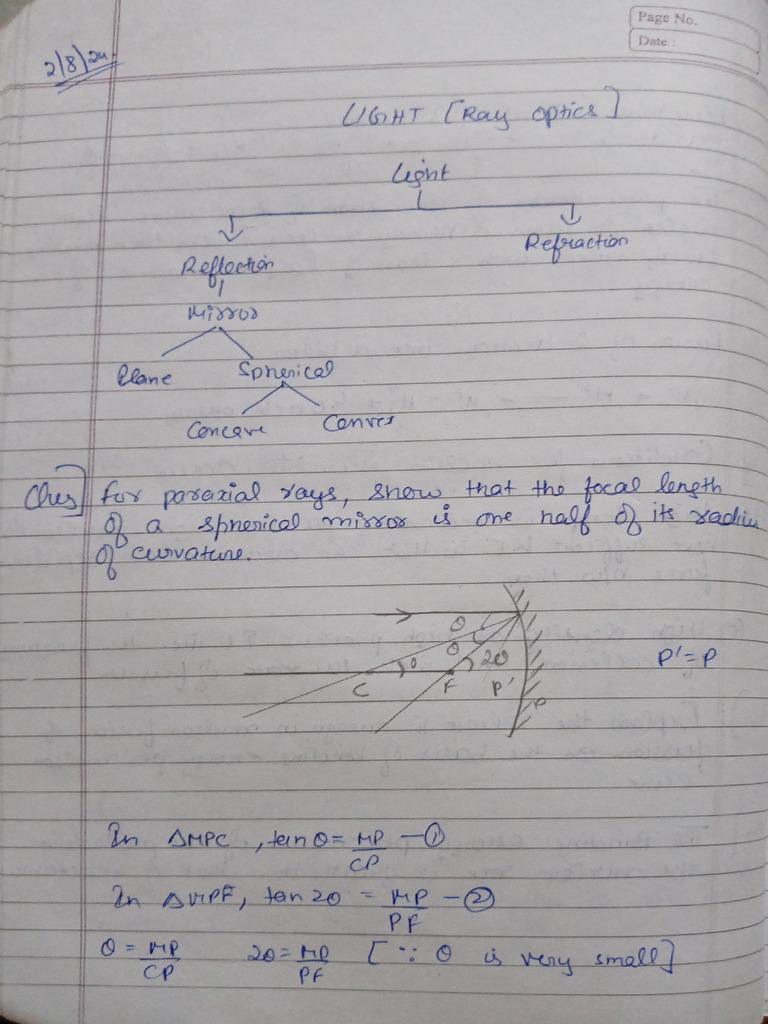 Page No.
Date :
2/8/24
LIGHT [Ray optics]
Light
Reflection
Refraction
Mirror
Plane Spherical
Concave Convex
Ques] for paraxial rays, show that the focal length
of a spherical mirror is one half of its radius
of curvature.
θ
θ
θ 2θ
P' = P
C F P'
P
In ΔMPC, tan θ = MP/CP — ①
In ΔMPF, tan 2θ = MP/PF — ②
θ = MP/CP 2θ = MP/PF [∵ θ is very small]